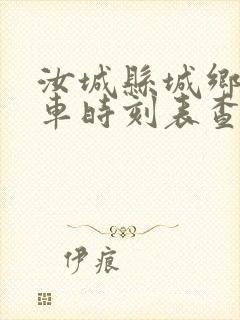 汝城縣城鄉
車時刻表查
伊痕